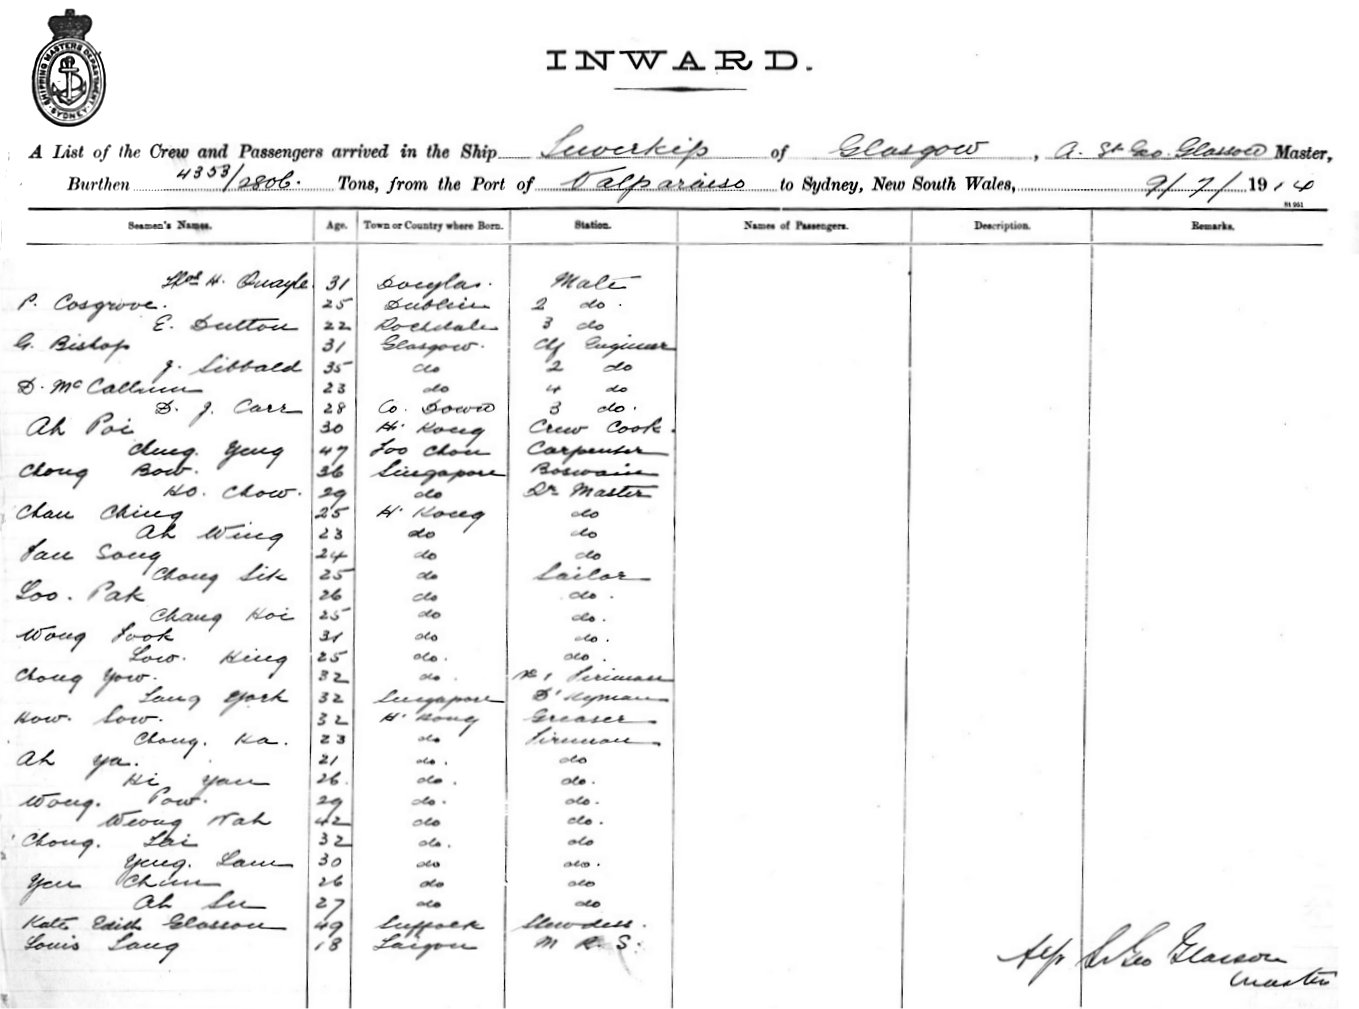 SHIPPING MASTERS DEPARTMENT SYDNEY
INWARD.
A List of the Crew and Passengers arrived in the Ship Inverkip of Glasgow, A. St Geo. Glasson Master,
Burthen 4353/2806. Tons, from the Port of Valparaiso to Sydney, New South Wales, 9/7/1914
Seamen's Names. Age. Town or Country where Born. Station. Names of Passengers. Description. Remarks.
Thos H. Quayle. 31 Douglas. Mate
P. Cosgrove. 25 Dublin 2 do.
E. Dutton 22 Rochdale 3 do
G. Bishop 31 Glasgow. Chf Engineer
J. Sibbald 35 do 2 do
D. McCallum 23 do 4 do
D. J. Carr 28 Co. Down 3 do.
Ah Poi 30 H. Kong Crew Cook.
Ching Yeng 47 Foo Chou Carpenter
Chong Bow. 36 Singapore Boswain
Ho. Chow. 29 do Qr Master
Chan Ching 25 H. Kong do
Ah Wing 23 do do
Tan Song 24 do do
Chong Sik 25 do Sailor
Loo. Pak 26 do do.
Chang Hoi 25 do do.
Wong Fook 31 do do.
Low. King 25 do. do.
Chong Yow. 32 do. No 1 Fireman
Lang York 32 Singapore D'kyman
How. Sow. 32 H. Kong Greaser
Chong. Ka. 23 do Fireman
Ah Ya. 21 do. do
Hi Yau 26. do. do.
Wong. Pow. 29 do. do.
Weong Wah 42 do do.
Chong. Lai 32 do. do
Yeng. Lam 30 do do.
Yeu Chun 26 do do
Ah Su 27 do do
Kate Edith Glasson 49 Suffolk Stewdess.
Louis Lang 18 Saigon M R. S.
St Geo Glasson
Master